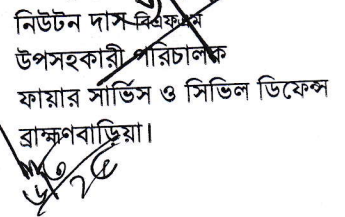 নিউটন দাস বিএফএম
উপসহকারী পরিচালক
ফায়ার সার্ভিস ও সিভিল ডিফেন্স
ব্রাহ্মণবাড়িয়া।